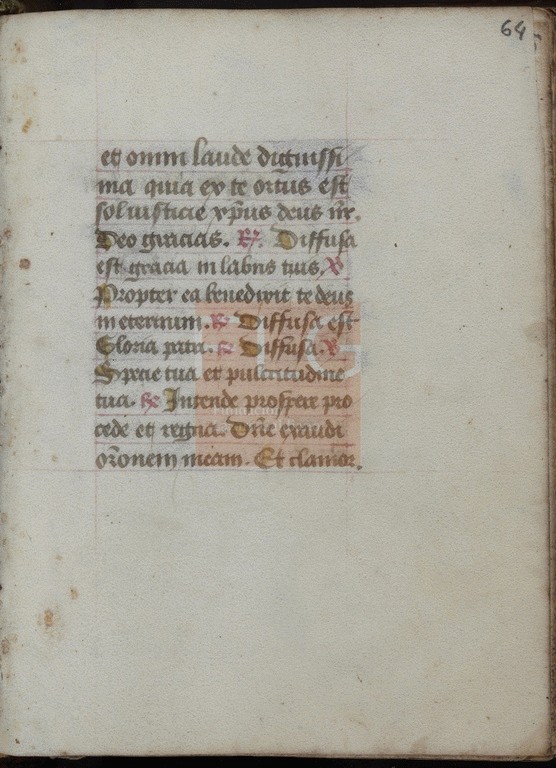 64
et omni laude dignissi
ma quia ex te ortus est
sol iusticie xp̄us deus nr̄.
Deo gracias. R̄. Diffusa
est gracia in labiis tuis. V̄
Propter ea benedixit te deus
in eternum. R̄ Diffusa est
Gloria patri. R̄ Diffusa. V̄
Specie tua et pulcritudine
tua. R̄ Intende prospere pro
cede et regna. Dn̄e exaudi
or̄onem meam. Et clamor.
FLG